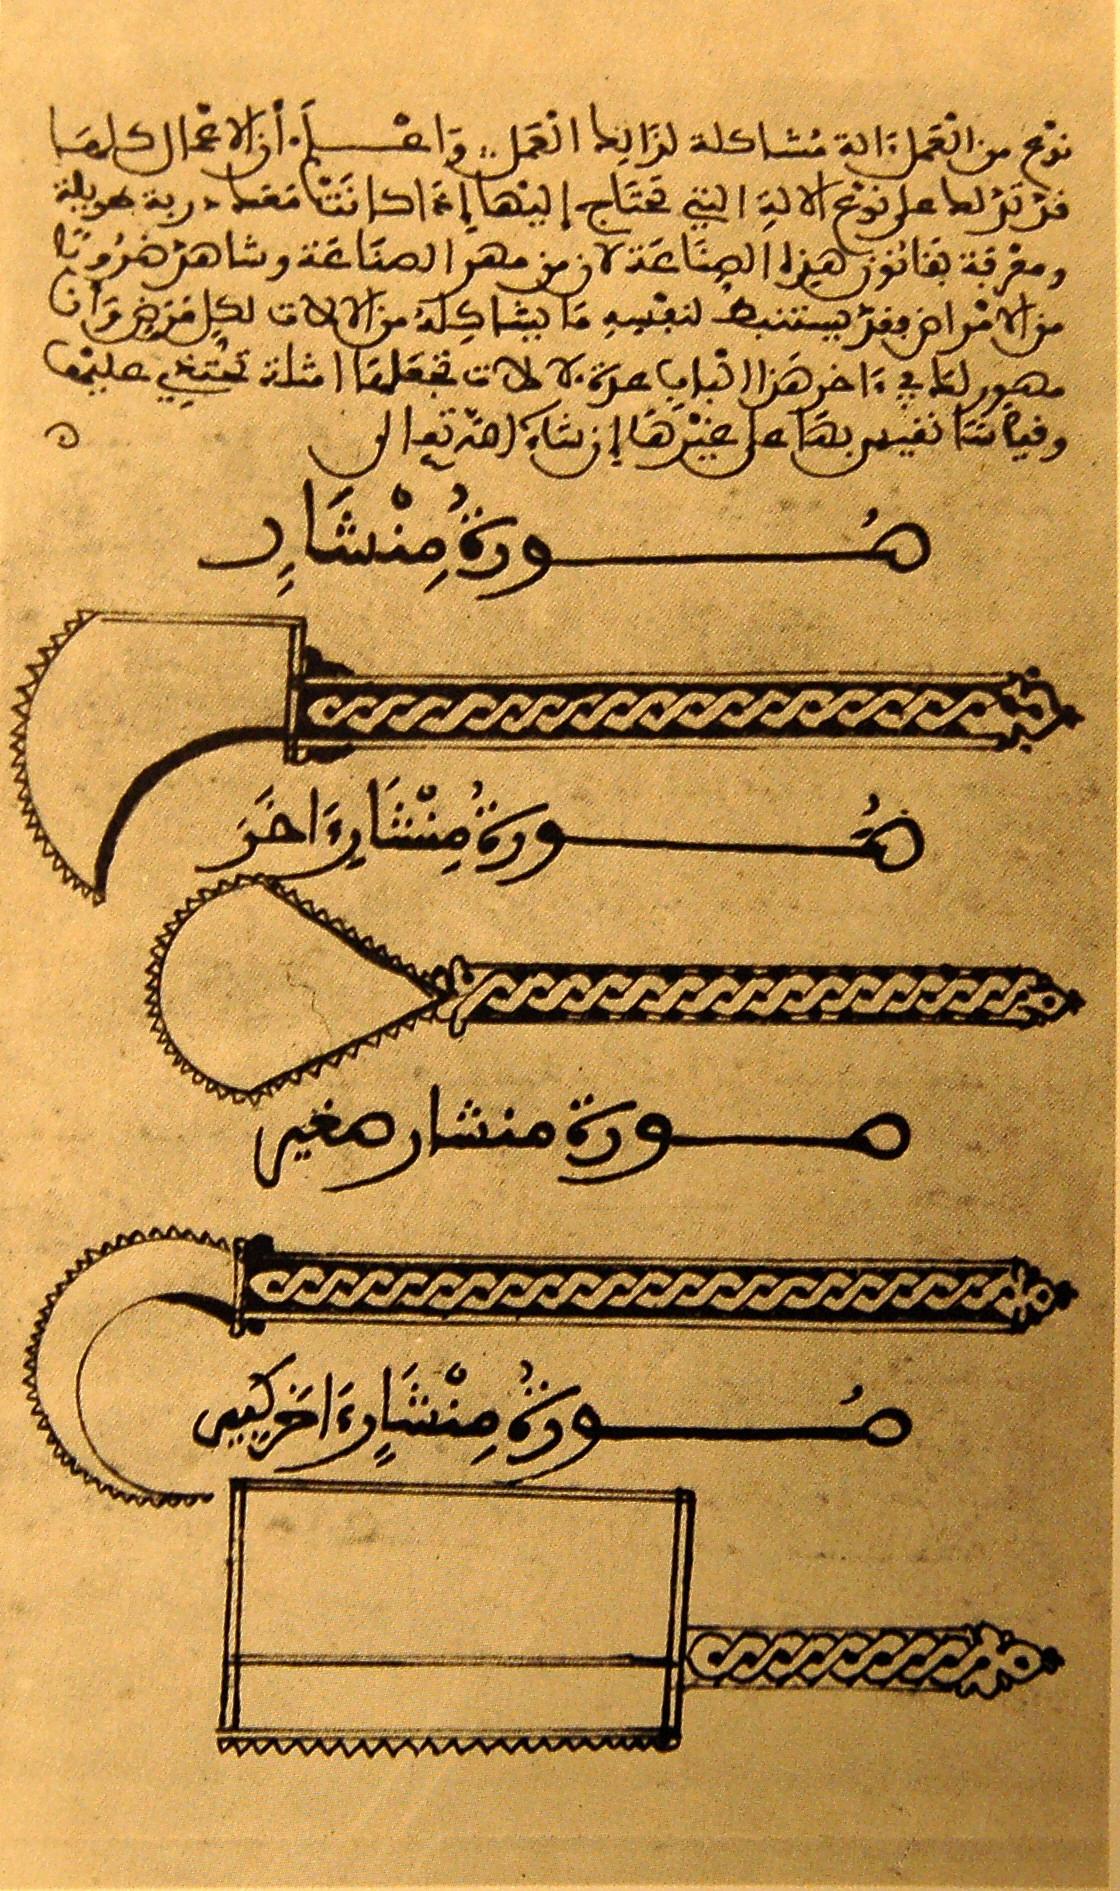 نوع من العمل ءالة مشاكلة لذالك العمل واعلم أن الاعمال كلها
قد تدلك على نوع الالة التي تحتاج إليها إذا كانت معك دربة طويلة
ومعرفة بقانون هذه الصناعة لان من مهر الصناعة وشاهد ضروبا
من الامراض فقد يستنبط لنفسه ما يشاكله من الالات لكل مرض وأنا
مصور لك في ءاخر هذا الباب عدة الات تجعلها امثلة تحتذي عليها
وقياسا تقيس بها على غيرها إن شاء الله تعالى
صُورةُ مِنْشَارٍ
صُورةُ مِنْشَارٍ ءَاخَرَ
صورة منشار صغير
صُورةُ مِنْشَارٍ ءَاخَر كَبير